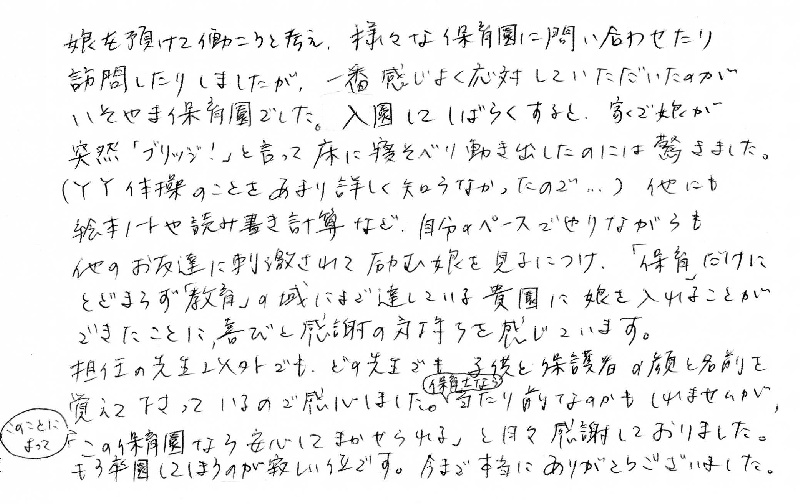 娘を預けて働こうと考え、様々な保育園に問い合わせたり
訪問したりしましたが、一番感じよく応対していただいたのが
いそやま保育園でした。入園してしばらくすると、家で娘が
突然「ブリッジ!」と言って床に寝そべり動き出したのには驚きました。
(YY体操のことをあまり詳しく知らなかったので…)他にも
絵本ノートや読み書き計算など、自分のペースでやりながらも
他のお友達に刺激されて励む娘を見るにつけ、「保育」だけに
とどまらず「教育」の域にまで達している貴園に娘を入れることが
できたことに、喜びと感謝の気持ちを感じています。
担任の先生以外でも、どの先生でも、子供と保護者の顔と名前を
覚えて下さっているので感心しました。保育士なら当たり前なのかもしれませんが、
このことによって「この保育園なら安心してまかせられる」と日々感謝しておりました。
もう卒園してしまうのが寂しい位です。今まで本当にありがとうございました。